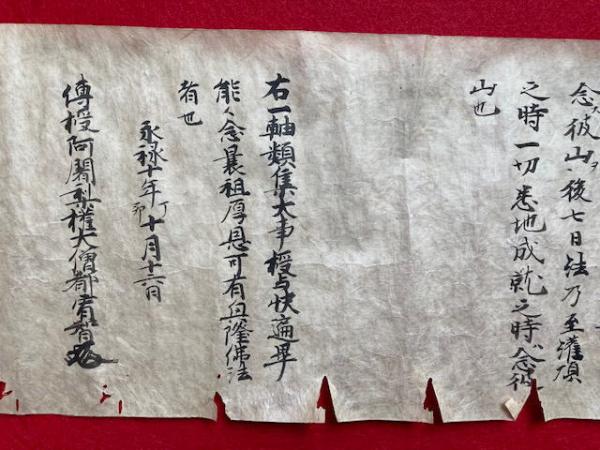 念彼山ヲ後七日法乃至灌頂
之時一切悉地成就之時念彼
山也
右一軸類集大事授与快遍畢
能々念曩祖厚恩可有興隆佛法
者也
永禄十年丁卯十月十六日
傳授阿闍梨権大僧都